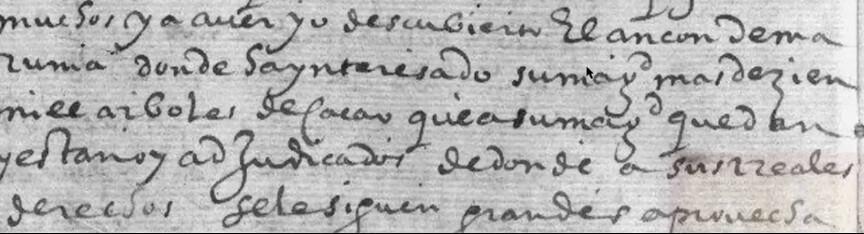 muchos y a auer yo descubierto El ancon de ma
ruma donde Sa ynteresado su magd mas de zien
mill arboles de Cacao que a su magd quedan
y estan oy adJudicados de donde a sus rreales
derechos se le siguen grandes aprouecha